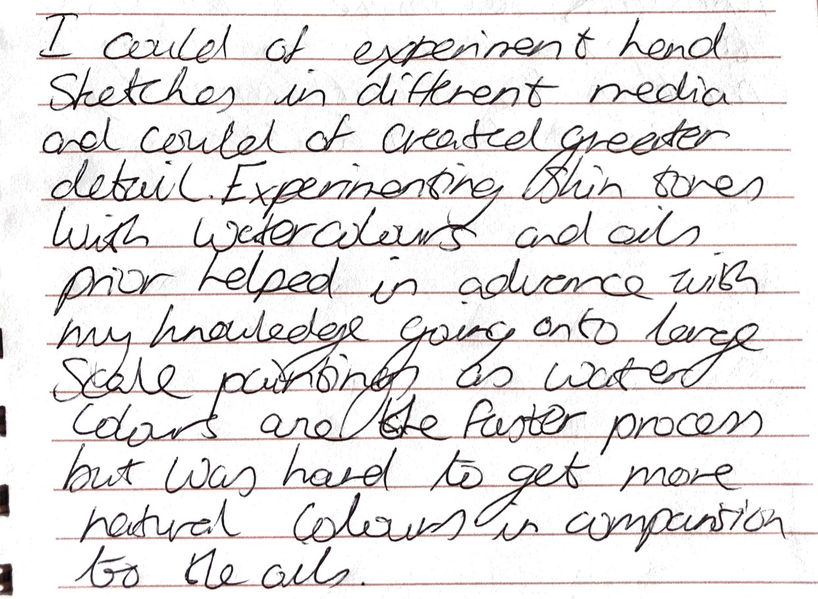 I could of experiment hand
Sketches in different media
and could of created greater
detail. Experimenting skin tones
with watercolours and oils
prior helped in advance with
my knowledge going onto large
Scale paintings as water
colours are the faster process
but was hard to get more
natural colours in comparision
to the oils.